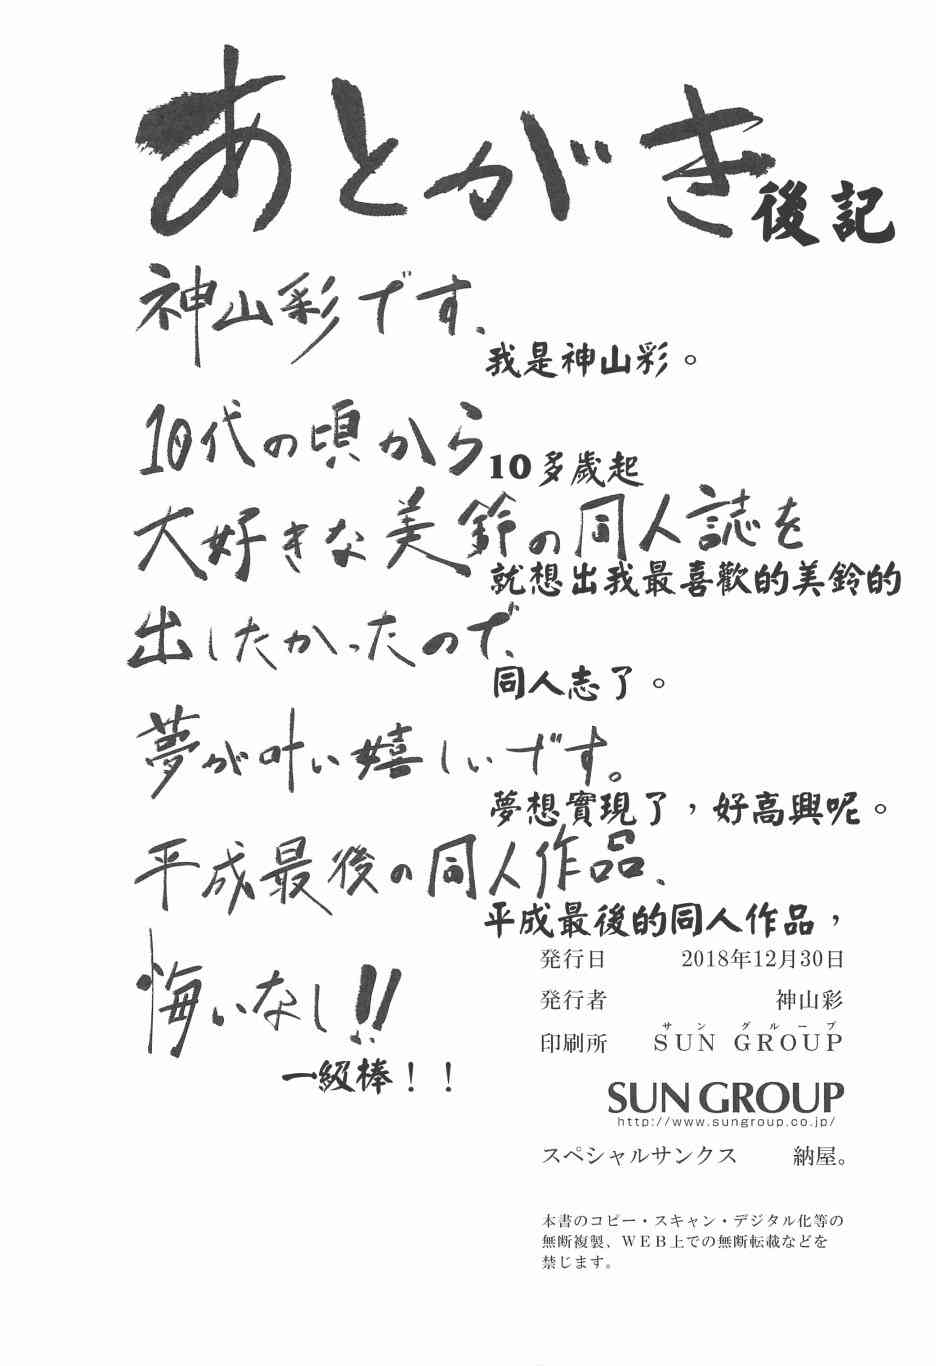 あとがき
後記
神山彩です、
我是神山彩。
10代の頃から
10多歲起
大好きな美鈴の同人誌を
就想出我最喜歡的美鈴的
出したかったので、
同人志了。
夢が叶い嬉しいです。
夢想實現了，好高興呢。
平成最後の同人作品、
平成最後的同人作品，
悔いなし!!
一級棒！！
発行日 2018年12月30日
発行者 神山彩
サン グループ
印刷所 SUN GROUP
SUN GROUP
http://www.sungroup.co.jp/
スペシャルサンクス 納屋。
本書のコピー・スキャン・デジタル化等の
無断複製、WEB上での無断転載などを
禁じます。